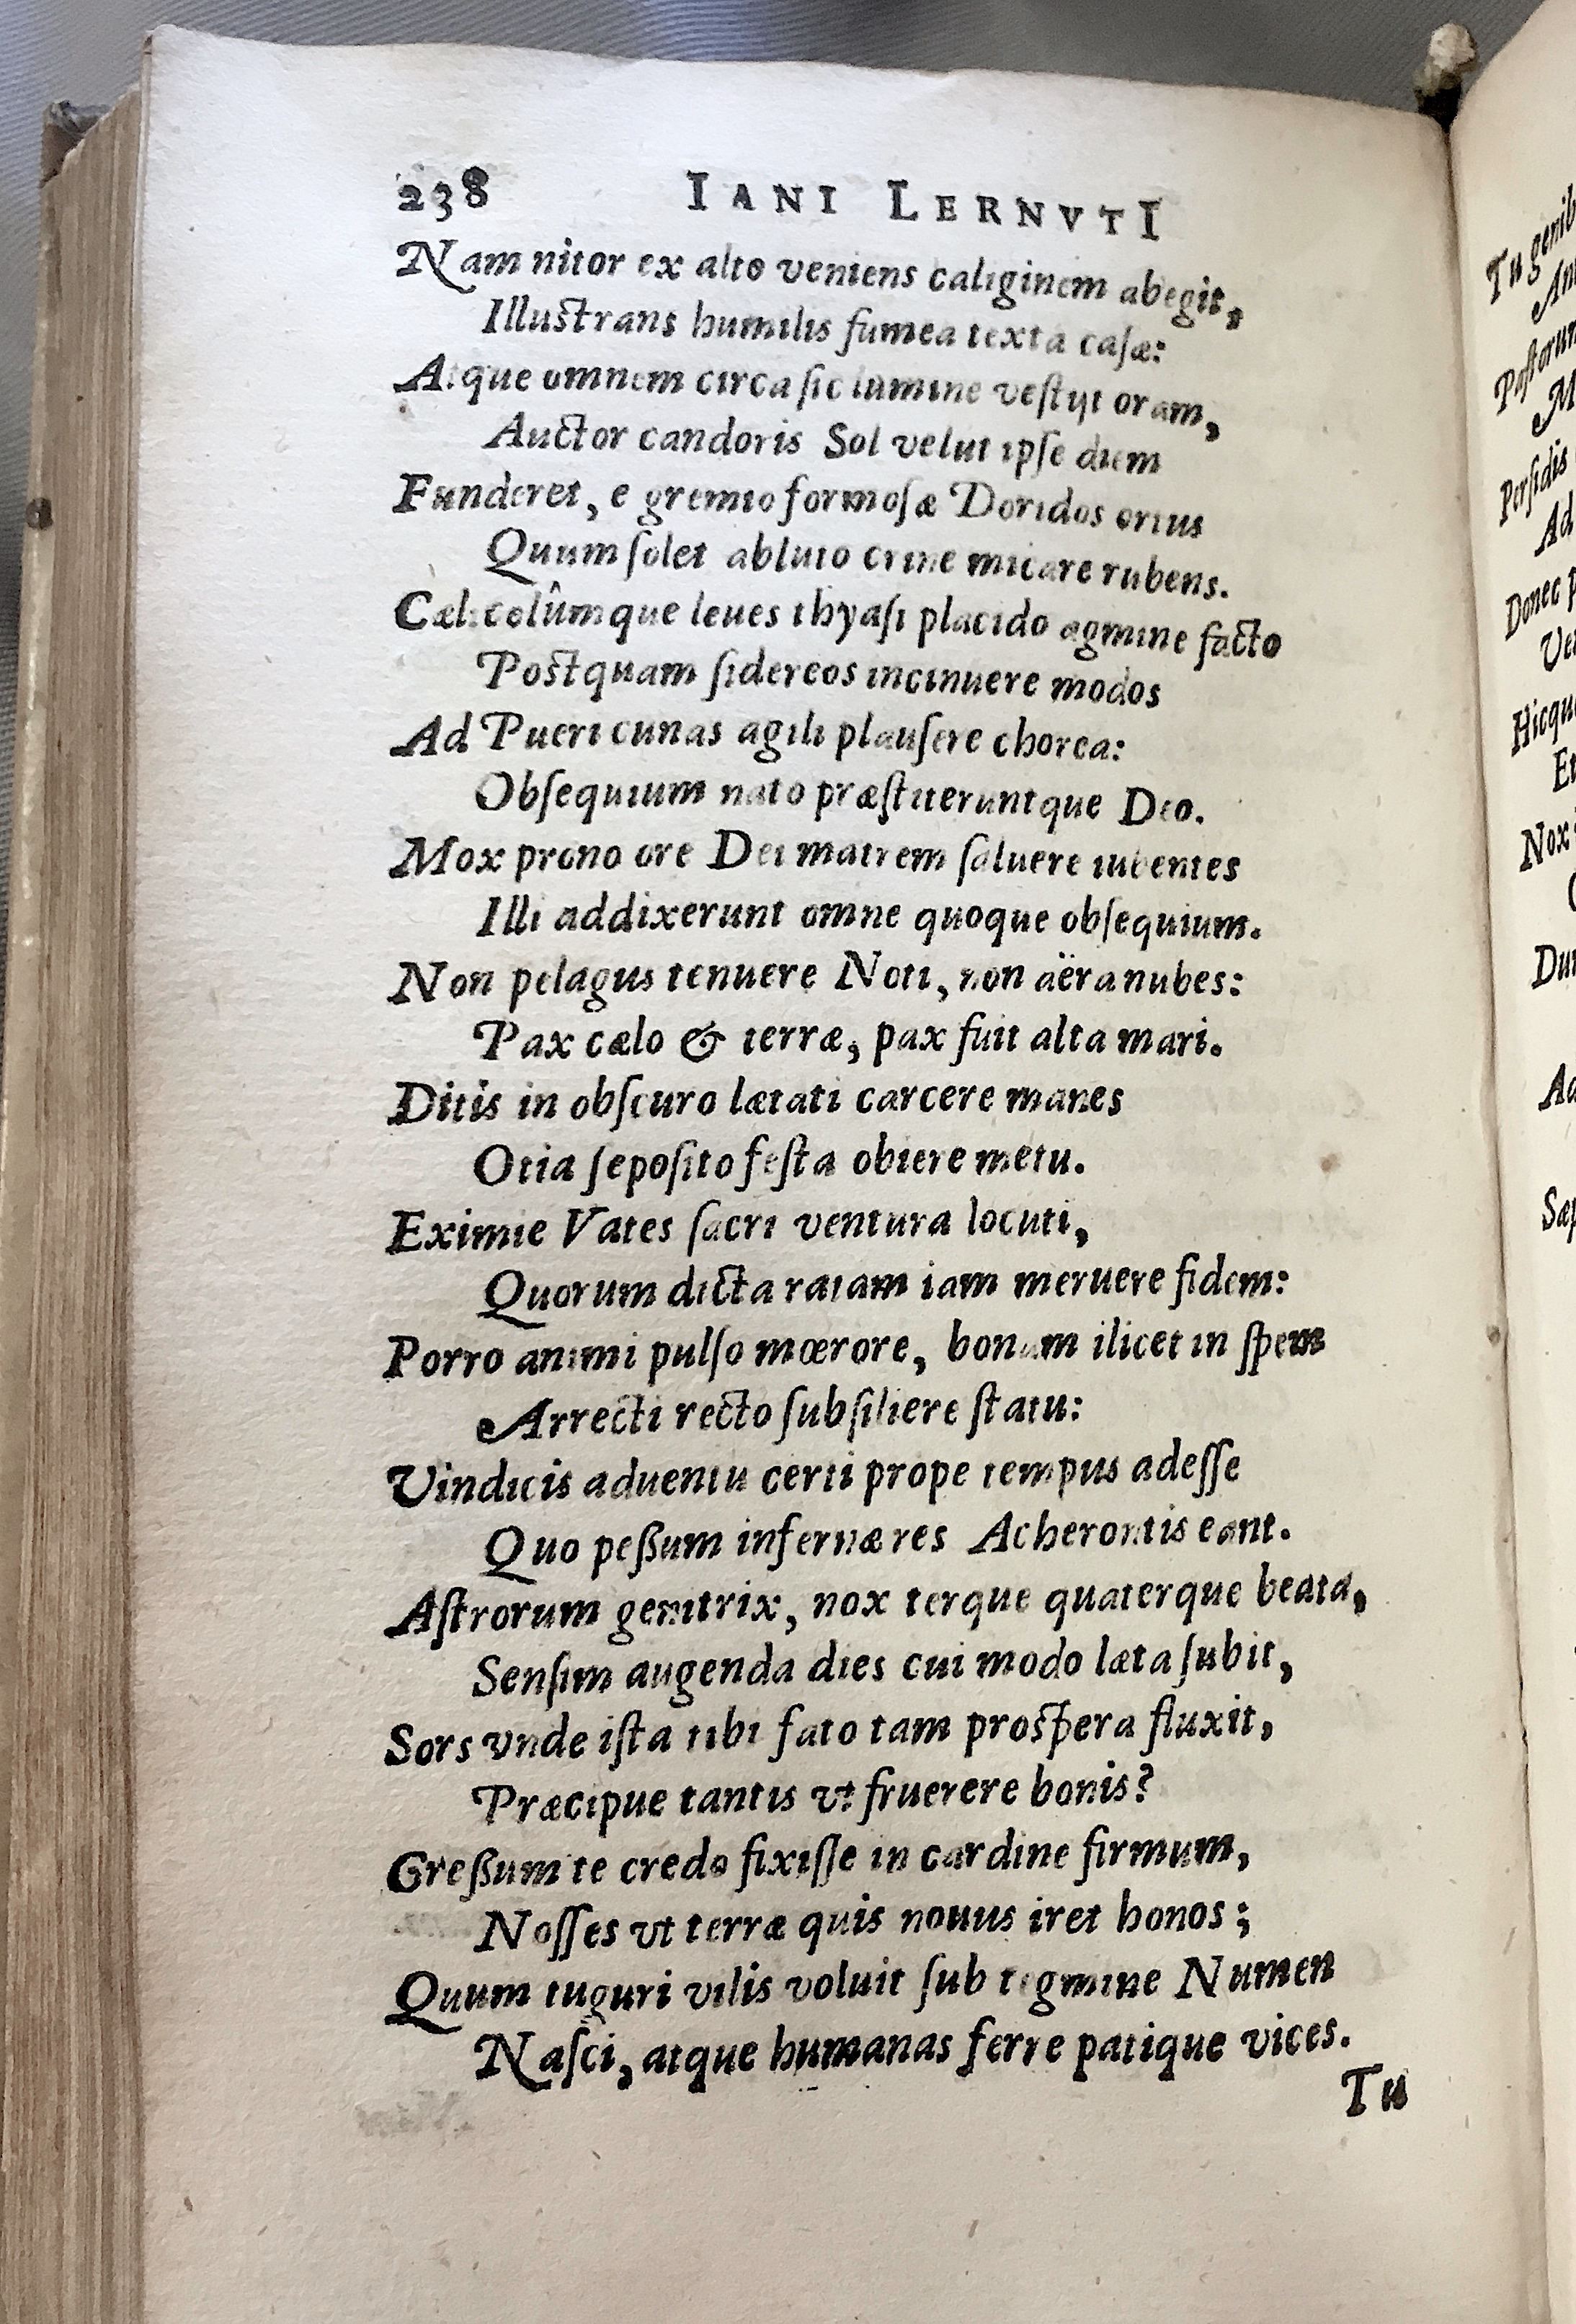 238 IANI LERNVTI
Nam nitor ex alto veniens caliginem abegit,
Illustrans humilis fumea texta casæ:
Atque omnem circa sic lumine vestijt oram,
Auctor candoris Sol velut ipse diem
Funderet, e gremio formosæ Doridos ortus
Quum solet abluto crine micare rubens.
Cælicolûmque leues thyasi placido agmine facto
Postquam sidereos incinuere modos
Ad Pueri cunas agili plausere chorea:
Obsequium nato præstiteruntque Deo.
Mox prono ore Dei matrem saluere iubentes
Illi addixerunt omne quoque obsequium.
Non pelagus tenuere Noti, non aëra nubes:
Pax cælo & terræ, pax fuit alta mari.
Ditis in obscuro lætati carcere manes
Otia seposito festa obiere metu.
Eximie Vates sacri ventura locuti,
Quorum dicta ratam iam meruere fidem:
Porro animi pulso mœrore, bonam ilicet in spem
Arrecti recto subsiliere statu:
Vindicis aduentu certi prope tempus adesse
Quo peßum infernæ res Acherontis eant.
Astrorum genitrix, nox terque quaterque beata,
Sensim augenda dies cui modo læta subit,
Sors vnde ista tibi fato tam prospera fluxit,
Præcipue tantis vt fruerere bonis?
Greßum te credo fixisse in cardine firmum,
Nosses vt terræ quis nouus iret honos;
Quum tuguri vilis voluit sub tegmine Numen
Nasci, atque humanas ferre patique vices.
Tu
Tu genib
Pastorum
M
Persidis
Ad
Donec p
Hicqu
Et
Nox
Dum
Ad
Sæp